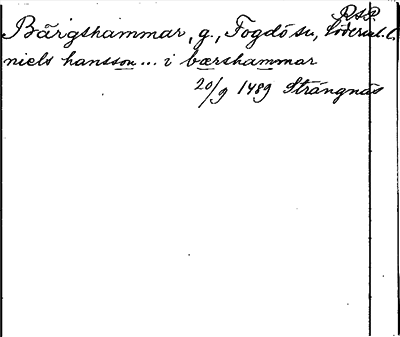 RSB.
Bärgshammar, g., Fogdö sn, Söderml. l.
niels hansson ... i bærshammar
20/9 1489 Strängnäs